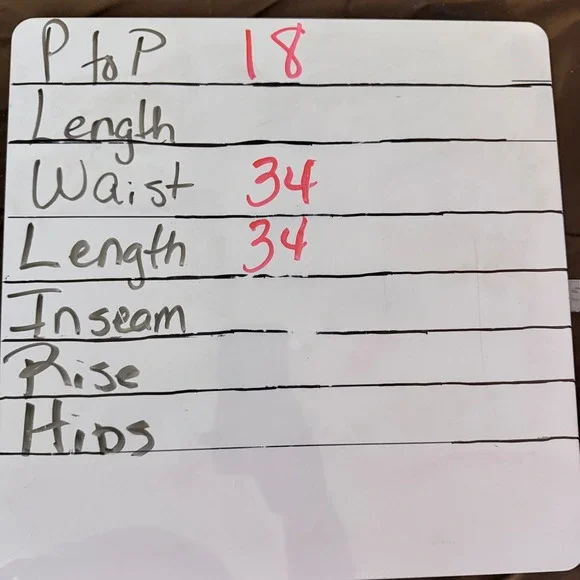 P to P 18
Length
Waist 34
Length 34
Inseam
Rise
Hips